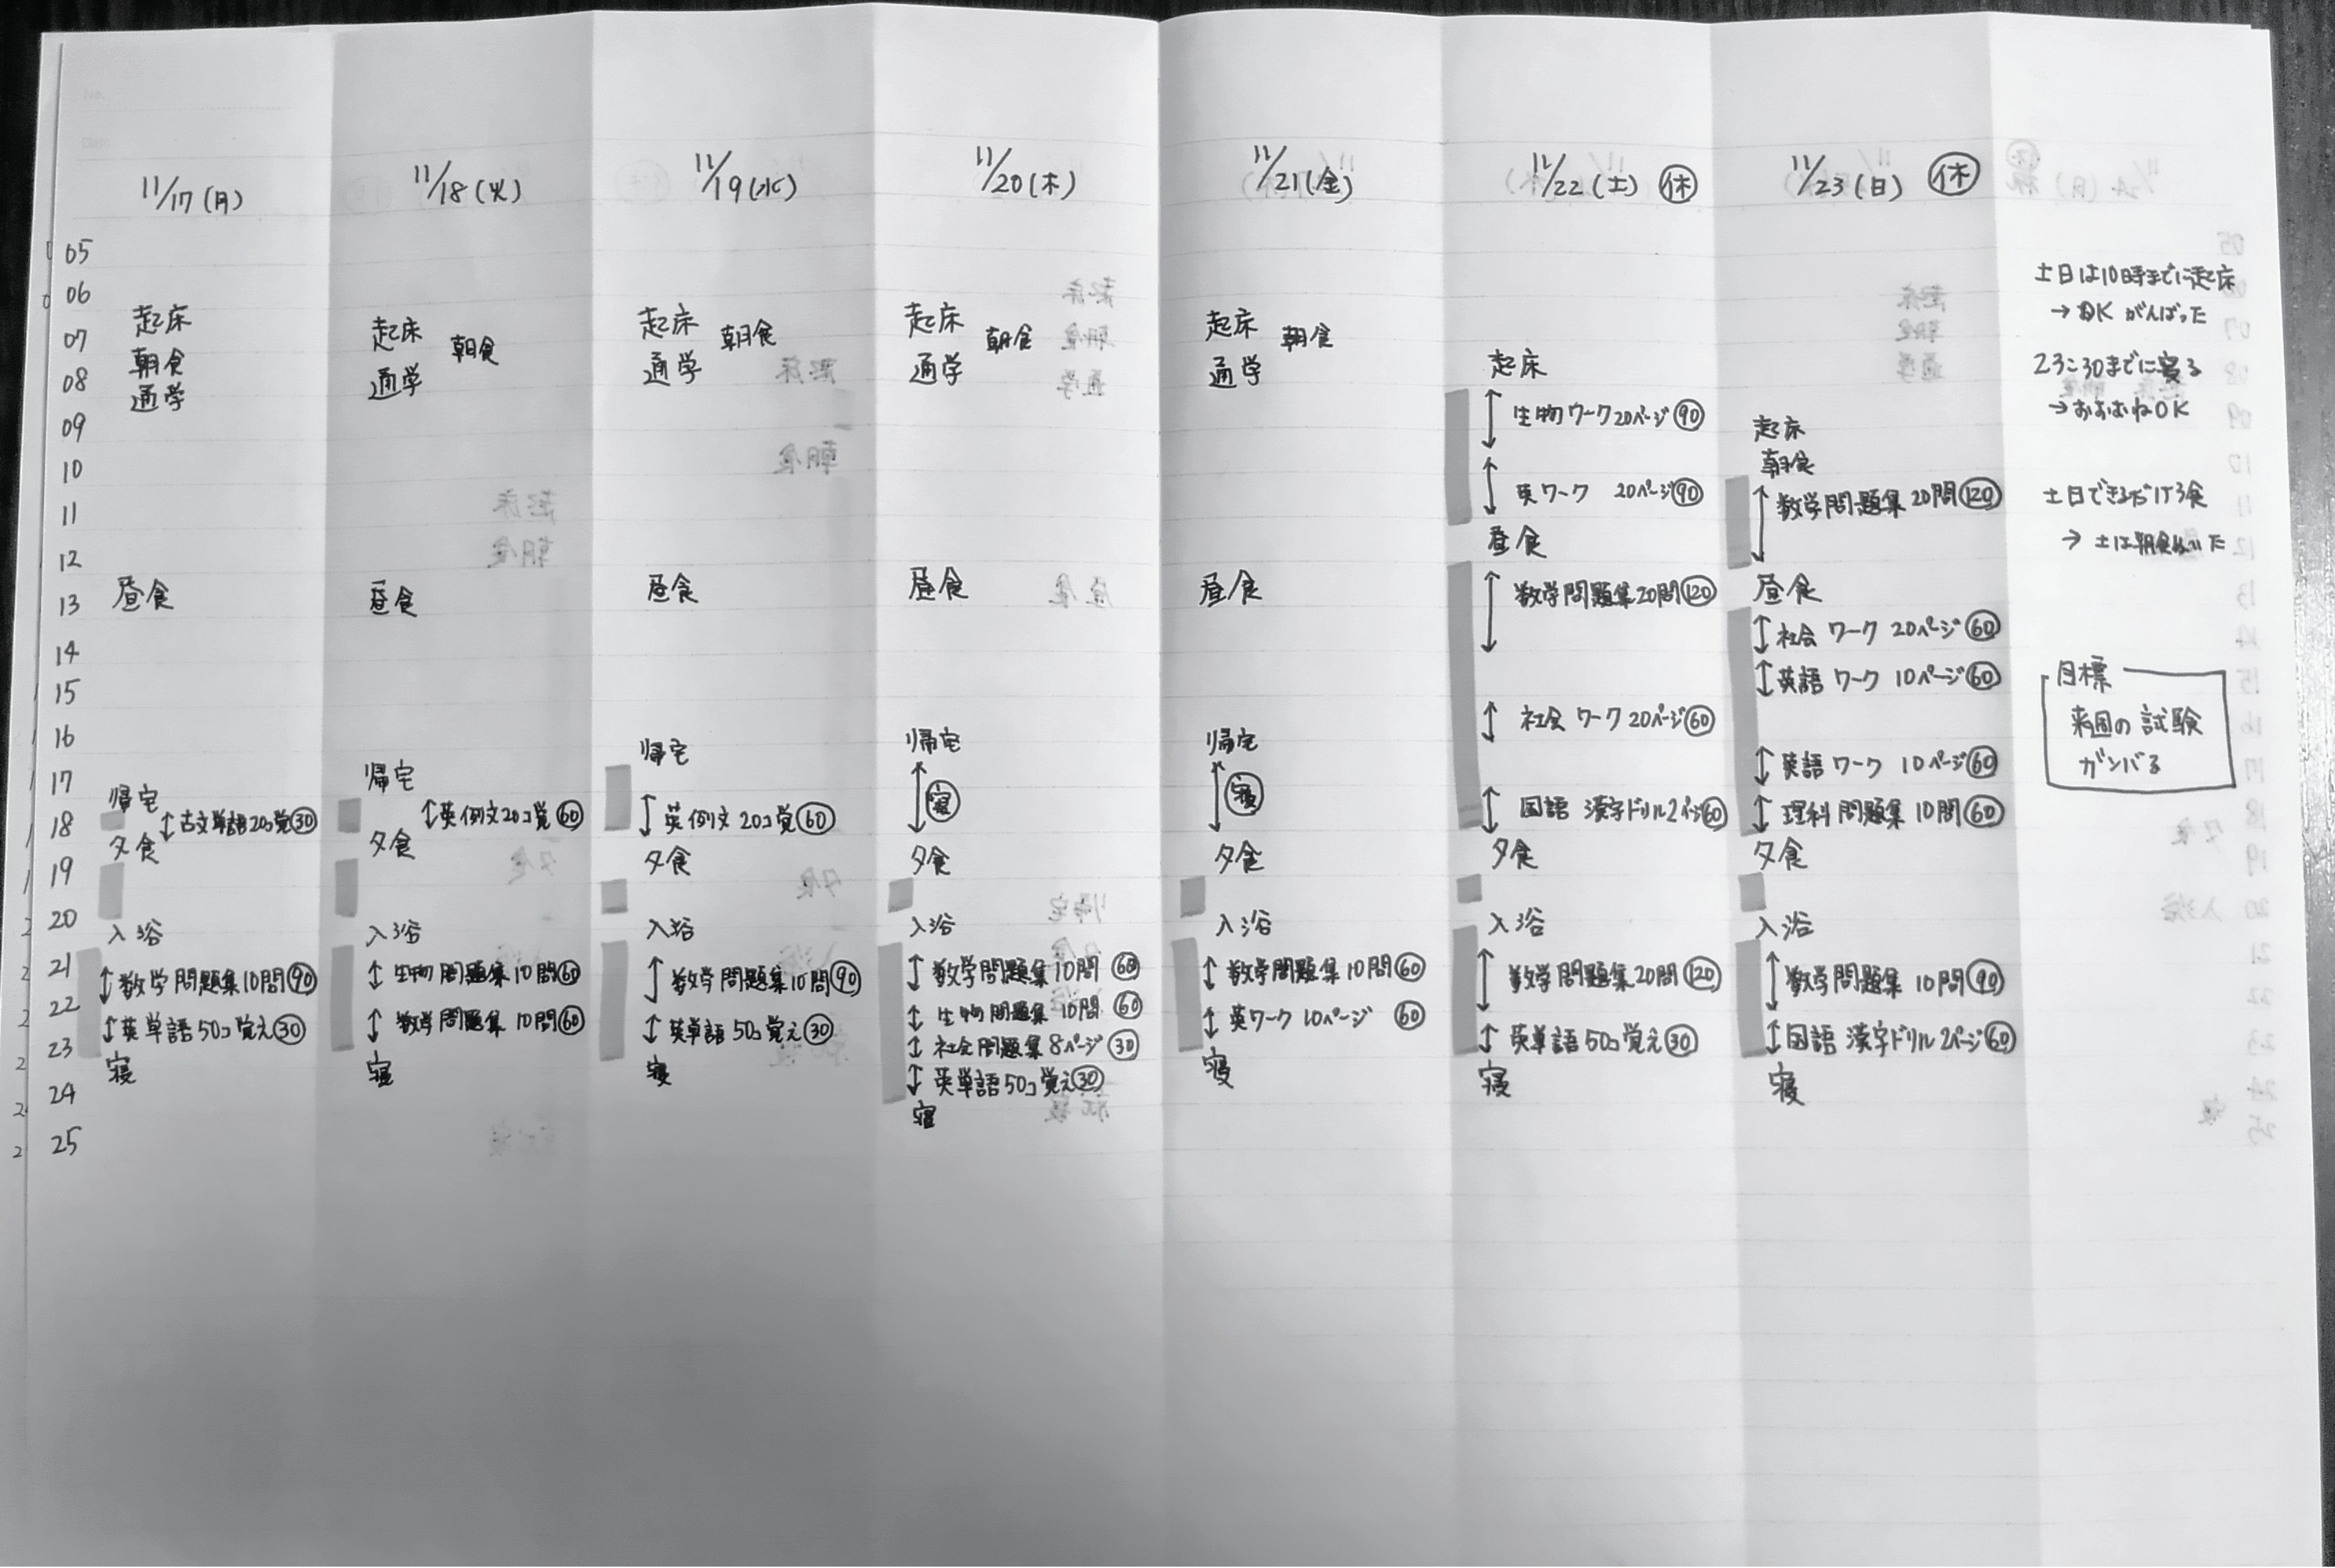 11/17(月)
05
06
07
08
09
10
11
12
13
14
15
16
17
18
19
20
21
22
23
24
25
起床
朝食
通学
昼食
帰宅
古文単語20コ覚㉚
夕食
入浴
数学問題集10問(90)
英単語50コ覚え㉚
寝
11/18(火)
起床 朝食
通学
昼食
帰宅
英例文20コ覚(60)
夕食
入浴
生物問題集10問(60)
数学問題集10問(60)
寝
11/19(水)
起床 朝食
通学
昼食
帰宅
英例文20コ覚(60)
夕食
入浴
数学問題集10問(90)
英単語50コ覚え㉚
寝
11/20(木)
起床 朝食
通学
昼食
帰宅
寝
夕食
入浴
数学問題集10問(60)
生物問題集10問(60)
社会問題集8ページ㉚
英単語50コ覚え㉚
寝
11/21(金)
起床 朝食
通学
昼食
帰宅
寝
夕食
入浴
数学問題集10問(60)
英ワーク10ページ(60)
寝
11/22(土) 休
起床
生物ワーク20ページ(90)
英ワーク 20ページ(90)
昼食
数学問題集20問(120)
社会ワーク20ページ(60)
国語 漢字ドリル2ページ(60)
夕食
入浴
数学問題集20問(120)
英単語50コ覚え㉚
寝
11/23(日) 休
起床
朝食
数学問題集20問(120)
昼食
社会ワーク 20ページ(60)
英語ワーク 10ページ(60)
英語ワーク 10ページ(60)
理科問題集10問(60)
夕食
入浴
数学問題集 10問(90)
国語 漢字ドリル2ページ(60)
寝
土日は10時までに起床
→OK がんばった
23:30までに寝る
→おおむねOK
土日できるだけ3食
→土は朝食ぬいた
目標
来週の試験
ガンバる